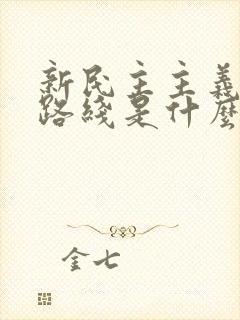 新民主主義
路綫是什麼
金七